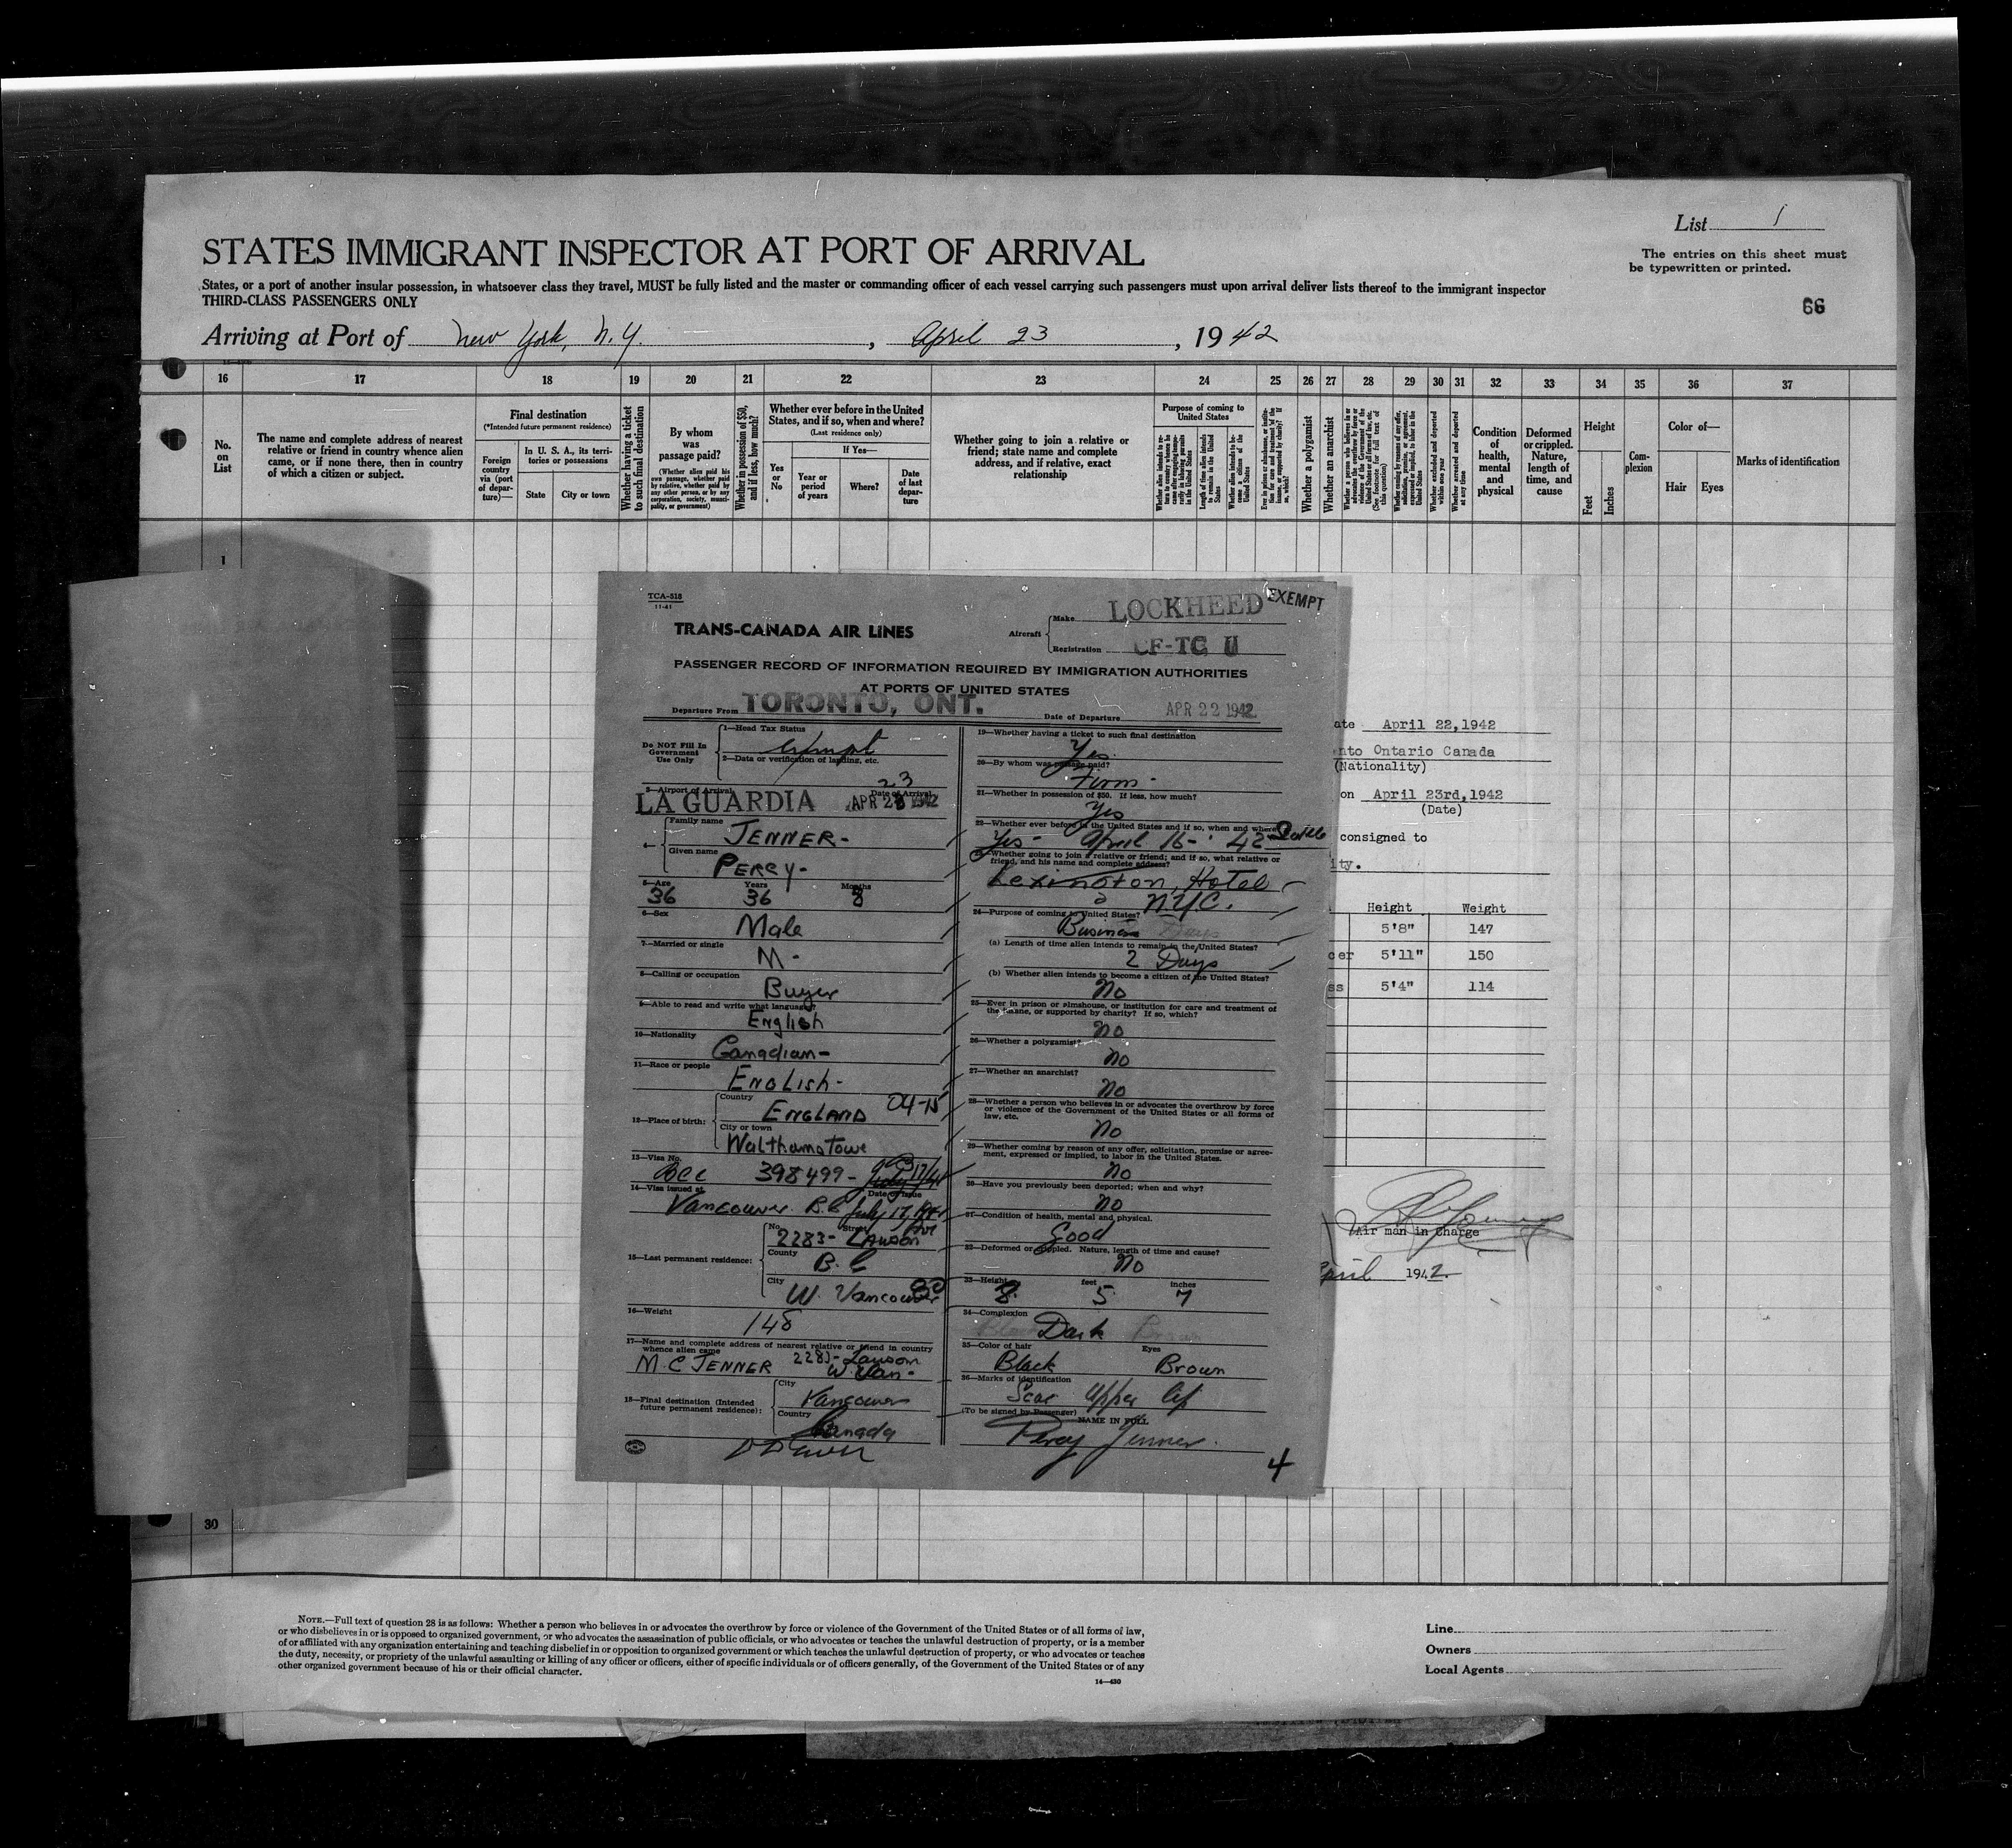 List 1
STATES IMMIGRANT INSPECTOR AT PORT OF ARRIVAL
The entries on this sheet must
be typewritten or printed.
States, or a port of another insular possession, in whatsoever class they travel, MUST be fully listed and the master or commanding officer of each vessel carrying such passengers must upon arrival deliver lists thereof to the immigrant inspector
THIRD-CLASS PASSENGERS ONLY
66
Arriving at Port of New York, N.Y., April 23, 1942
16 17 18 19 20 21 22 23 24 25 26 27 28 29 30 31 32 33 34 35 36 37
No.
on
List
The name and complete address of nearest
relative or friend in country whence alien
came, or if none there, then in country
of which a citizen or subject.
Final destination
(*Intended future permanent residence)
Foreign
country
via (port
of depar-
ture)—
In U. S. A., its terri-
tories or possessions
State
City or town
Whether having a ticket
to such final destination
By whom
was
passage paid?
(Whether alien paid his
own passage, whether paid
by relative, whether paid by
any other person, or by any
corporation, society, munici-
pality, or government)
Whether in possession of $50,
and if less, how much?
Whether ever before in the United
States, and if so, when and where?
(Last residence only)
Yes
or
No
If Yes—
Year or
period
of years
Where?
Date
of last
depar-
ture
Whether going to join a relative or
friend; state name and complete
address, and if relative, exact
relationship
Purpose of coming to
United States
Length of time alien intends
to remain in the United
States
Whether a polygamist
Whether an anarchist
Whether excluded and deported
within one year
Whether arrested and deported
at any time
Condition
of
health,
mental
and
physical
Deformed
or crippled.
Nature,
length of
time, and
cause
Height
Feet
Inches
Com-
plexion
Color of—
Hair
Eyes
Marks of identification
1
TCA-518
11-41
TRANS-CANADA AIR LINES
Aircraft
Make LOCKHEED
EXEMPT
Registration CF-TC U
PASSENGER RECORD OF INFORMATION REQUIRED BY IMMIGRATION AUTHORITIES
AT PORTS OF UNITED STATES
Departure From TORONTO, ONT. Date of Departure APR 22 1942
Do NOT Fill In
Government
Use Only
1—Head Tax Status
exempt
2—Data or verification of landing, etc.
3—Airport of Arrival Date of Arrival
23
LA GUARDIA APR 1942
4— Family name
JENNER-
Given name
PERCY-
5—Age Years Months
36 36 8
6—Sex
Male
7—Married or single
M-
8—Calling or occupation
Buyer
9—Able to read and write what language?
English
10—Nationality
Canadian-
11—Race or people
ENGLISH-
12—Place of birth:
Country
ENGLAND 04-15
City or town
Walthamstowe
13—Visa No.
BCC 398499-
14—Visa issued at Date of Issue
Vancouver B.C. July 17, 1941
15—Last permanent residence:
No. Street
2283- Lawson Ave
County
B.C
City
W. Vancouver
16—Weight
148
17—Name and complete address of nearest relative or friend in country
whence alien came
M.C JENNER 2283- Lawson
W. Van-
18—Final destination (Intended
future permanent residence):
City
Vancouver
Country
Canada
19—Whether having a ticket to such final destination
Yes
20—By whom was passage paid?
Firm-
21—Whether in possession of $50. If less, how much?
Yes
22—Whether ever before in the United States and if so, when and where?
Yes- April 16- '42 Seattle
23—Whether going to join a relative or friend; and if so, what relative or
friend, and his name and complete address?
Lexington, Hotel
N.Y.C.
24—Purpose of coming to United States?
Business Days
(a) Length of time alien intends to remain in the United States?
2 Days
(b) Whether alien intends to become a citizen of the United States?
No
25—Ever in prison or almshouse, or institution for care and treatment of
the insane, or supported by charity? If so, which?
No
26—Whether a polygamist?
No
27—Whether an anarchist?
No
28—Whether a person who believes in or advocates the overthrow by force
or violence of the Government of the United States or all forms of
law, etc.
No
29—Whether coming by reason of any offer, solicitation, promise or agree-
ment, expressed or implied, to labor in the United States.
No
30—Have you previously been deported; when and why?
No
31—Condition of health, mental and physical.
Good
32—Deformed or crippled. Nature, length of time and cause?
No
33—Height feet inches
5 7
34—Complexion
Dark
35—Color of hair Eyes
Black Brown
36—Marks of identification
Scar Upper lip
(To be signed by Passenger) NAME IN FULL
Percy Jenner.
4
ate April 22,1942
nto Ontario Canada
(Nationality)
on April 23rd,1942
(Date)
consigned to
ity.
Height Weight
5'8" 147
cer 5'11" 150
ss 5'4" 114
Air man in Charge
April 1942.
30
NOTE.—Full text of question 28 is as follows: Whether a person who believes in or advocates the overthrow by force or violence of the Government of the United States or of all forms of law,
or who disbelieves in or is opposed to organized government, or who advocates the assassination of public officials, or who advocates or teaches the unlawful destruction of property, or is a member
of or affiliated with any organization entertaining and teaching disbelief in or opposition to organized government or which teaches the unlawful destruction of property, or who advocates or teaches
the duty, necessity, or propriety of the unlawful assaulting or killing of any officer or officers, either of specific individuals or of officers generally, of the Government of the United States or of any
other organized government because of his or their official character.
14—430
Line
Owners
Local Agents